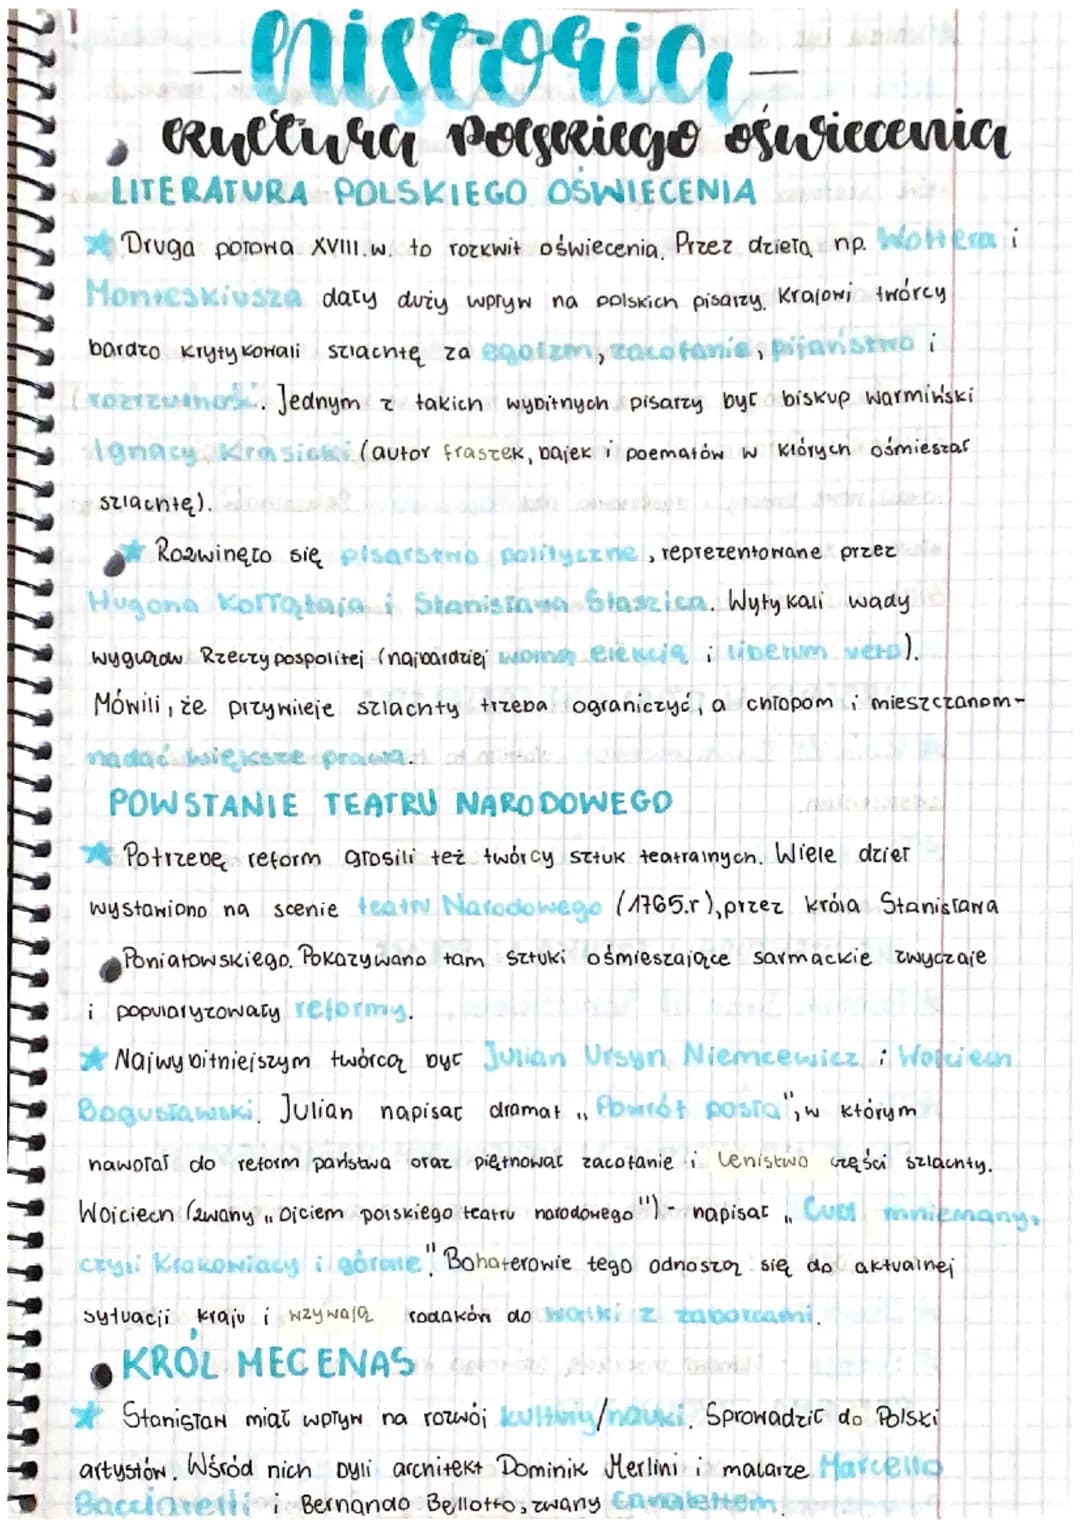 historia
kultura polskiego oświecenia
LITERATURA POLSKIEGO OŚWIECENIA
Druga połowa XVIII.w. to rozkwit oświecenia. Przez dzieła np. Woltera i
Monteskiusza dały duży wpływ na polskich pisarzy. Krajowi twórcy
bardzo krytykowali szlachtę za egoizm, zacofanie, pijaństwo i
rozrzutność. Jednym z takich wybitnych pisarzy był biskup warmiński
Ignacy Krasicki (autor fraszek, bajek i poematów w których ośmieszał
szlachtę).
Rozwinęło się pisarstwo polityczne, reprezentowane przez
Hugona Kołłątaja i Stanisława Staszica. Wytykali wady
wyglądu Rzeczypospolitej (najbardziej wolną elekcją i liberum veto).
Mówili, że przywileje szlachty trzeba ograniczyć, a chłopom i mieszczanom-
nadać większe prawa.
POWSTANIE TEATRU NARODOWEGO
Potrzebę reform głosili też twórcy sztuk teatralnych. Wiele dzieł
wystawiono na scenie teatru Narodowego (1765.r), przez króla Stanisława
Poniatowskiego. Pokazywano tam sztuki ośmieszające sarmackie zwyczaje
i popularyzowały reformy.
Najwybitniejszym twórcą był Julian Ursyn Niemcewicz i Wojciech
Bogusławski. Julian napisał dramat „Powrót posła", w którym
nawołał do reform państwa oraz piętnował zacofanie i lenistwo części szlachty.
Wojciech (zwany „ojciem polskiego teatru narodowego") - napisał „Cud mniemany,
czyli Krakowiacy i górale". Bohaterowie tego odnoszą się do aktualnej
sytuacji kraju i wzywają rodaków do walki z zaborcami.
KRÓL MECENAS
Stanisław miał wpływ na rozwój kultury/nauki. Sprowadził do Polski
artystów. Wśród nich byli architekt Dominik Merlini i malarze Marcello
Bacciarelli i Bernando Bellotto, zwany Canalettem.